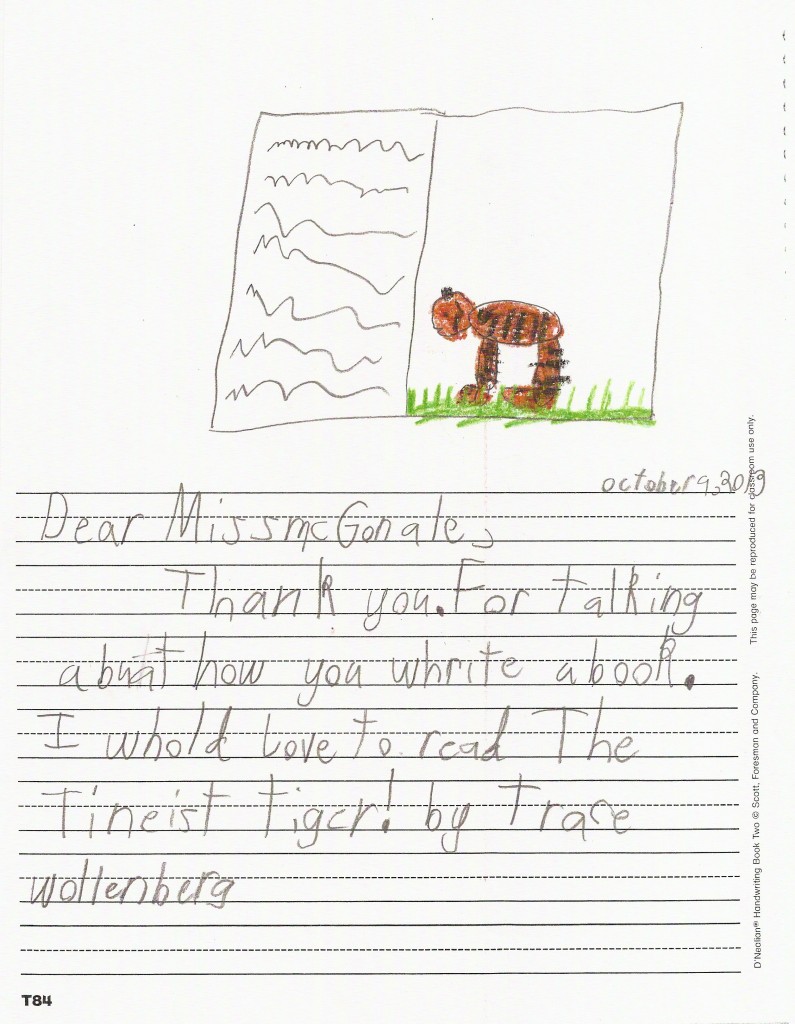 october 9, 2013
Dear Miss mcGonale,
Thank you. For talking
abuat how you whrite a book.
I whold love to read The
Tineist tiger! by Trace
wollenberg
This page may be reproduced for classroom use only.
D'Nealian® Handwriting Book Two © Scott, Foresman and Company.
T84